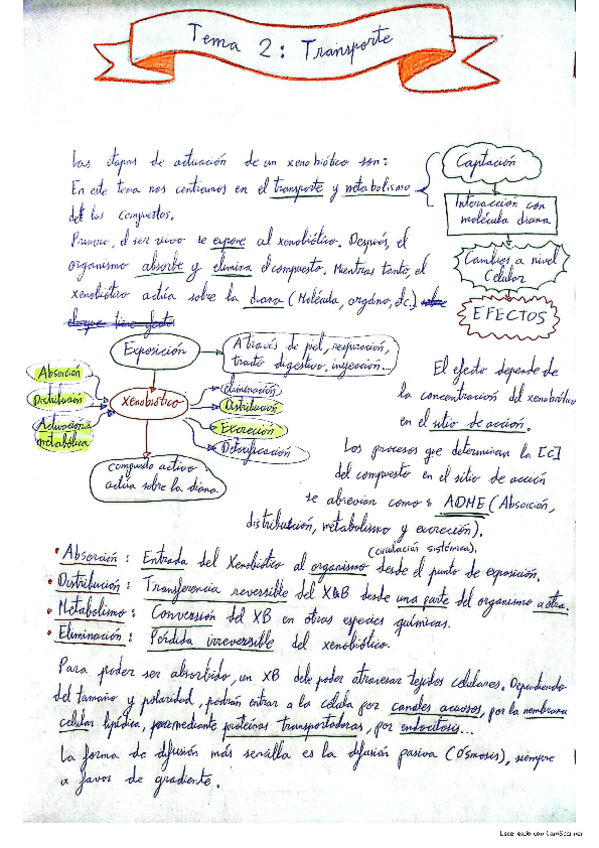 Tema 2: Transporte
Las etapas de actuación de un xenobiótico son:
En este tema nos centramos en el transporte y metabolismo
de los compuestos.
Primero, el ser vivo se expone al xenobiótico. Después, el
organismo absorbe y elimina el compuesto. Mientras tanto, el
xenobiótico actúa sobre la diana (Molécula, orgáno, etc.)
Captación
Interacción con
molécula diana
Cambios a nivel
Celular
EFECTOS
Exposición
A través de piel, respiración,
tracto digestivo, inyección...
Absorción
Distribución
Activación
metabólica
Xenobiótico
eliminación
Distribución
Excreción
Detoxificación
compuesto activo
actúa sobre la diana.
El efecto depende de
la concentración del xenobiótico
en el sitio de acción.
Los procesos que determinan la [c]
del compuesto en el sitio de acción
se abrevian como: ADME (Absorción,
distribución, metabolismo y excreción).
(circulación sistémica)
• Absorción: Entrada del Xenobiótico al organismo desde el punto de exposición.
• Distribución: Transferencia reversible del XB desde una parte del organismo a otra.
• Metabolismo: Conversión del XB en otras especies químicas.
• Eliminación: Pérdida irreversible del xenobiótico.
Para poder ser absorbido, un XB debe poder atravesar tejidos celulares. Dependiendo
del tamaño y polaridad, podrán entrar a la célula por canales acuosos, por la membrana
celular lipídica, mediante proteínas transportadoras, por endocitosis...
La forma de difusión más sencilla es la difusión pasiva (Osmosis), siempre
a favor de gradiente.
Escaneado con CamScanner